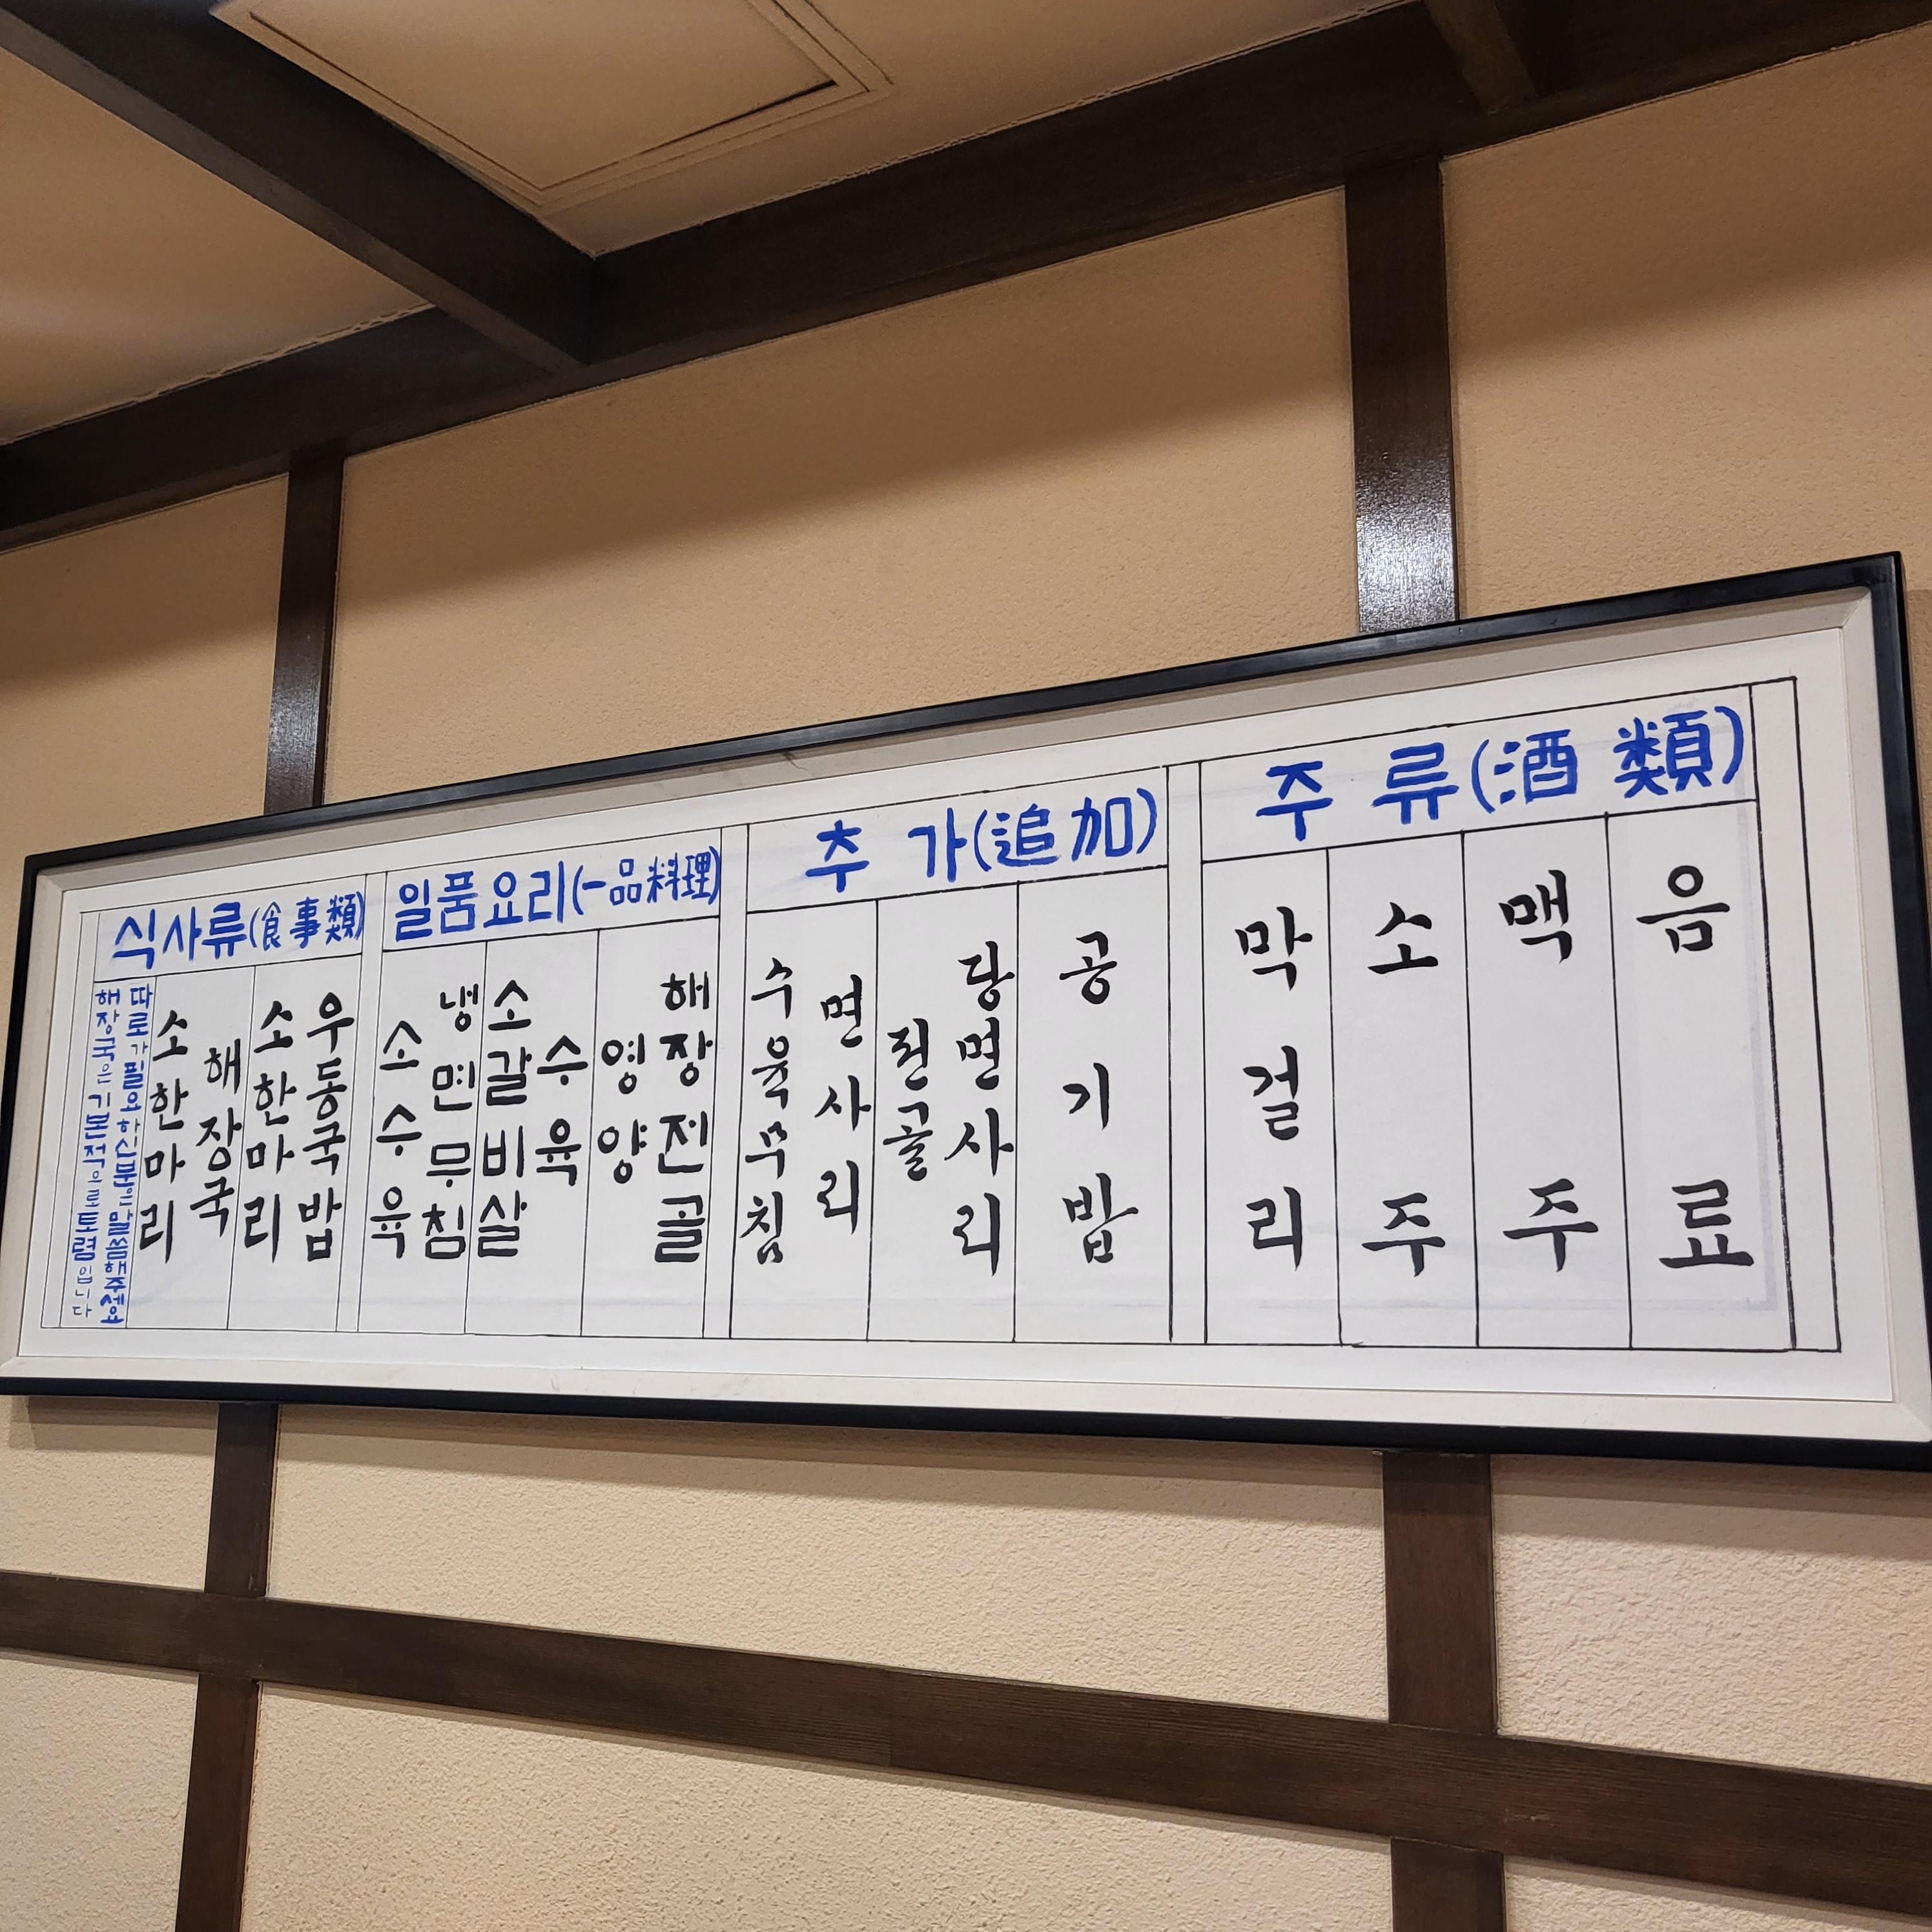 식사류(食事類)
해장국은 기본적으로 토렴입니다
따로가 필요하신분은 말씀해주세요
소한마리
해장국
소한마리
우동국밥
일품요리(一品料理)
소수육
냉면무침
소갈비살
수육
영양
해장전골
추 가(追加)
수육무침
면사리
전골
당면사리
공기밥
주 류(酒 類)
막걸리
소주
맥주
음료